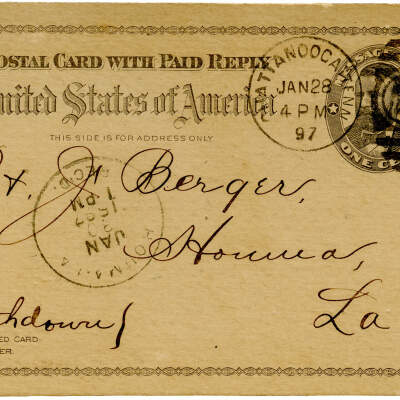 POSTAL CARD WITH PAID REPLY
United States of America
THIS SIDE IS FOR ADDRESS ONLY
CHATTANOOGA, TENN.
JAN 28
4 PM
97
ONE C
J Berger,
Houma,
La
REC'D.
1 PM
JAN
HOUMA, LA
hdown
ED CARD
ER.